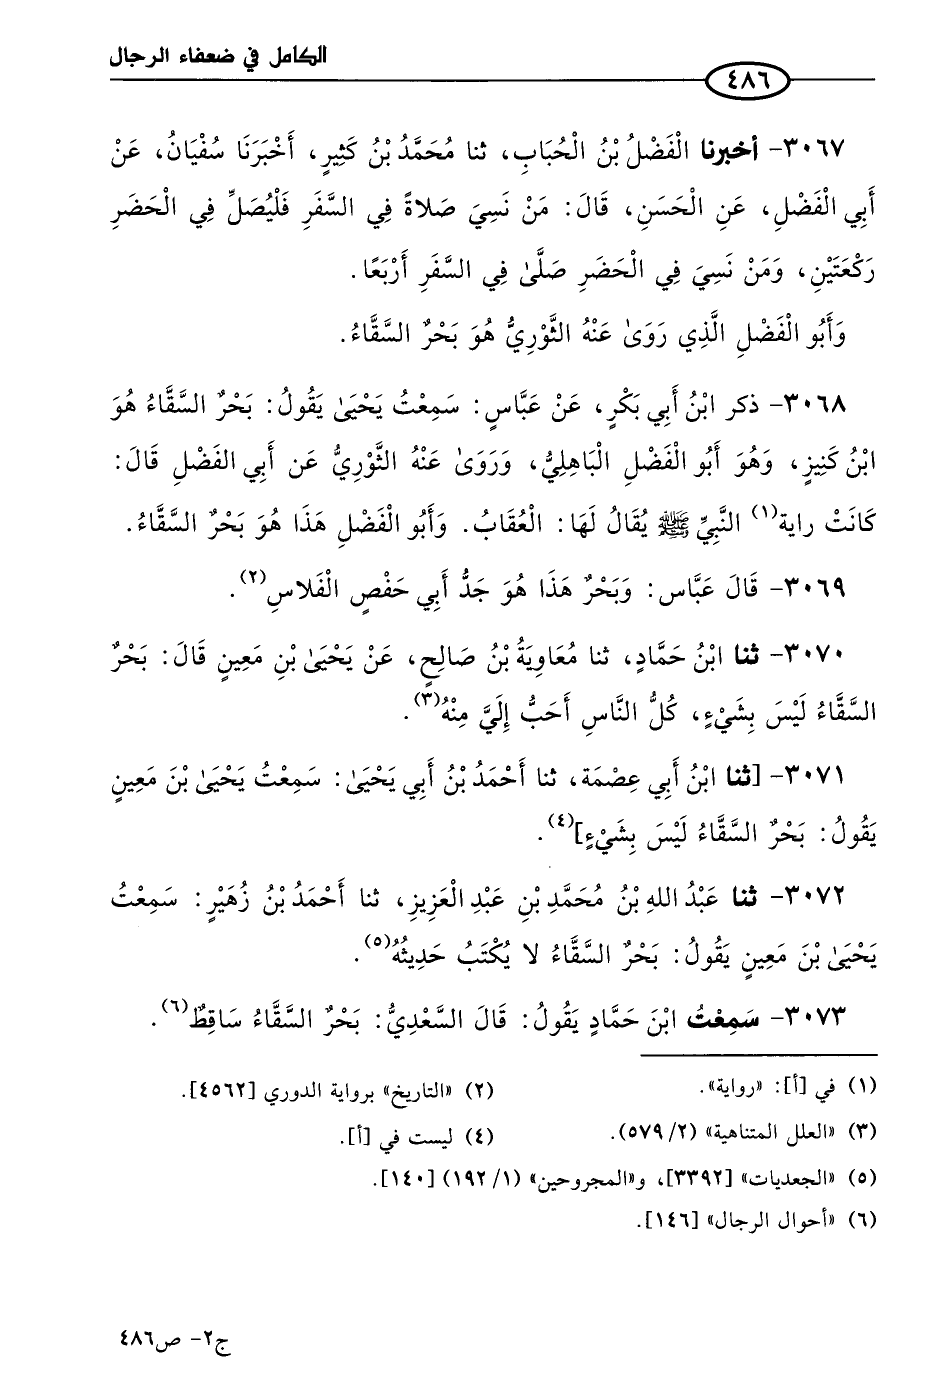 الكامل في ضعفاء الرجال
٤٨٦
٣٠٦٧- أخبرنا الْفَضْلُ بْنُ الْحُبَابِ، ثنا مُحَمَّدُ بْنُ كَثِيرٍ، أَخْبَرَنَا سُفْيَانُ، عَنْ
أَبِي الْفَضْلِ، عَنِ الْحَسَنِ، قَالَ: مَنْ نَسِيَ صَلاةً فِي السَّفَرِ فَلْيُصَلِّ فِي الْحَضَرِ
رَكْعَتَيْنِ، وَمَنْ نَسِيَ فِي الْحَضَرِ صَلَّىٰ فِي السَّفَرِ أَرْبَعًا.
وَأَبُو الْفَضْلِ الَّذِي رَوَىٰ عَنْهُ الثَّوْرِيُّ هُوَ بَحْرُ السَّقَّاءُ.
٣٠٦٨- ذكر ابْنُ أَبِي بَكْرٍ، عَنْ عَبَّاسٍ: سَمِعْتُ يَحْيَىٰ يَقُولُ: بَحْرُ السَّقَّاءُ هُوَ
ابْنُ كَنِيزٍ، وَهُوَ أَبُو الْفَضْلِ الْبَاهِلِيُّ، وَرَوَىٰ عَنْهُ الثَّوْرِيُّ عَن أَبِي الفَضْلِ قَالَ:
كَانَتْ راية(١) النَّبِيِّ ﷺ يُقَالُ لَهَا: الْعُقَابُ. وَأَبُو الْفَضْلِ هَذَا هُوَ بَحْرُ السَّقَّاءُ.
٣٠٦٩- قَالَ عَبَّاس: وَبَحْرُ هَذَا هُوَ جَدُّ أَبِي حَفْصٍ الْفَلاسِ(٢).
٣٠٧٠- ثنا ابْنُ حَمَّادٍ، ثنا مُعَاوِيَةُ بْنُ صَالِحٍ، عَنْ يَحْيَىٰ بْنِ مَعِينٍ قَالَ: بَحْرُ
السَّقَّاءُ لَيْسَ بِشَيْءٍ، كُلُّ النَّاسِ أَحَبُّ إِلَيَّ مِنْهُ(٣).
٣٠٧١- [ثنا ابْنُ أَبِي عِصْمَة، ثنا أَحْمَدُ بْنُ أَبِي يَحْيَىٰ: سَمِعْتُ يَحْيَىٰ بْنَ مَعِينٍ
يَقُولُ: بَحْرُ السَّقَّاءُ لَيْسَ بِشَيْءٍ](٤).
٣٠٧٢- ثنا عَبْدُ اللهِ بْنُ مُحَمَّدِ بْنِ عَبْدِ الْعَزِيزِ، ثنا أَحْمَدُ بْنُ زُهَيْرٍ: سَمِعْتُ
يَحْيَىٰ بْنَ مَعِينٍ يَقُولُ: بَحْرُ السَّقَّاءُ لا يُكْتَبُ حَدِيثُهُ(٥).
٣٠٧٣- سَمِعْتُ ابْنَ حَمَّادٍ يَقُولُ: قَالَ السَّعْدِيُّ: بَحْرُ السَّقَّاءُ سَاقِطٌ(٦).
(١) في [أ]: «رواية». (٢) «التاريخ» برواية الدوري [٤٥٦٢].
(٣) «العلل المتناهية» (٢/ ٥٧٩). (٤) ليست في [أ].
(٥) «الجعديات» [٣٣٩٢]، و«المجروحين» (١/ ١٩٢) [١٤٠].
(٦) «أحوال الرجال» [١٤٦].
ج٢- ص٤٨٦